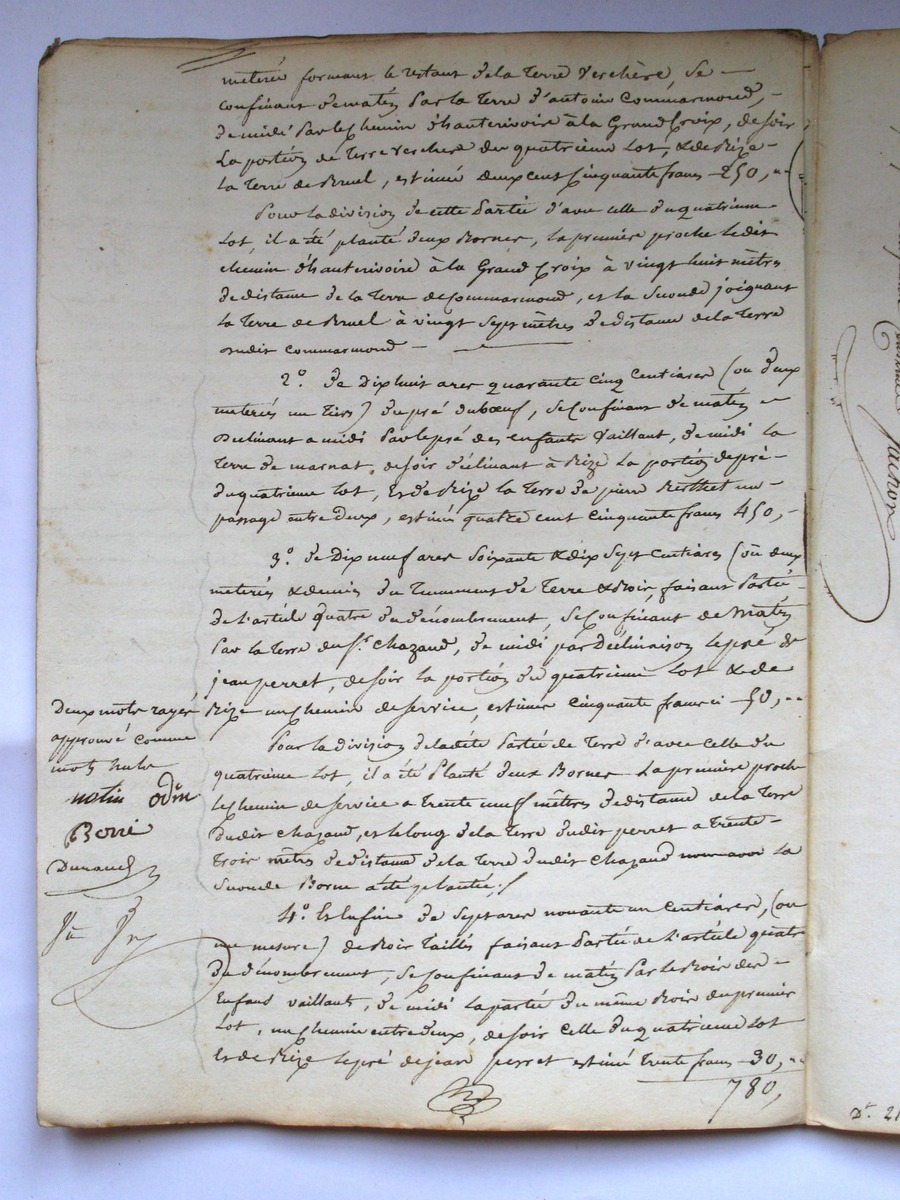 meterée formant le restant de la Terre Verchère, se
confinant de matin Par la Terre d'antoine Commarmond,
de midi Par le Chemin d'hauterivoire à la Grand Croix, de soir
La portion de Terre verchere du quatrieme Lot, & de Bize
la Terre de Bruel, estimée deux cent Cinquante francs 250,"
Pour la division de cette Partie d'avec celle du quatrieme
Lot, il a été planté deux Bornes, la premiere proche le dit
chemin d'hauterivoire à la Grand Croix à vingt huit mètres
de distance de la Terre de Commarmond, et la Seconde joignant
la Terre de Bruel à vingt Sept mètres de distance de la Terre
dudit Commarmond
2°. de Dix huit ares quarante Cinq Centiares (ou deux
meterées un Tiers) du pré du bœuf, se Confinant de matin
Déclinant a midi Par le pré des enfants Vaillant, de midi la
Terre de marnat, de soir déclinant à Bize La portion de pré
du quatrieme Lot, Et de Bize la Terre de pierre Berthet un
passage entre deux, estimés quatre cent Cinquante francs 450,
3° de Dix neuf ares Soixante & dix Sept Centiares (ou deux
meterées & demie du Tennement de Terre & Bois, faisant Partie
de L'article quatre du dénombrement, se Confinant de Matin
Par la Terre du Sr. Chazaud, de midi par Déclinaison le pré de
jean perret, de soir la portion du quatrieme Lot & de
Bize un chemin de service, estimée Cinquante francs ci 50,"
Pour la division de la dite Partie de Terre d'avec celle du
quatrieme Lot, il a été Planté deux Bornes La premiere proche
le chemin de service a Trente neuf mètres de distance de la Terre
dudit Chazaud, et le long de la Terre dudit perret a Trente
Trois mètres de distance de la Terre dudit Chazaud la
Seconde Borne a été plantée
4° Et Enfin de Sept ares nonante un Centiares, (ou
une mesure) de Bois Taillés faisant Partie de L'article quatre
du dénombrement, se Confinant de matin Par le Bois des
Enfans vaillant, de midi la partie du même Bois du premier
Lot, un chemin entre deux, de soir celle du quatrieme Lot
Et de Bize le pré de jean perret estimé Trente francs 30,"
780,
Deux mots rayés
approuvé comme
mots nuls
notin odin
Borri
Durand
Dt. 21